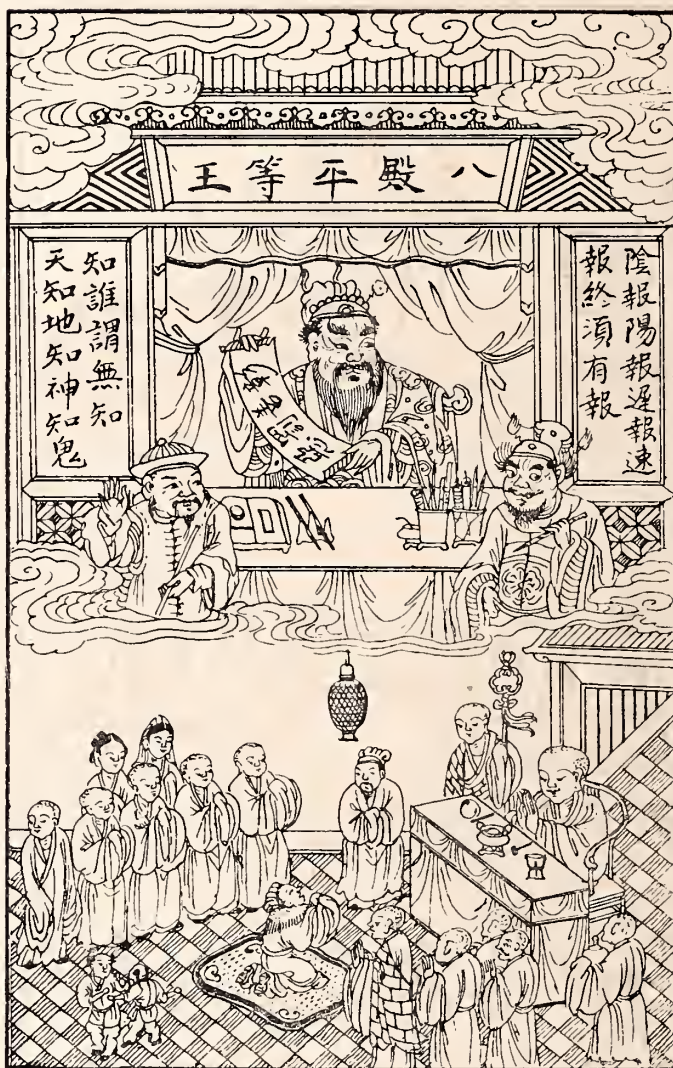 八殿平等王
陰報陽報遲報速
報終須有報
天知地知神知鬼
知誰謂無知